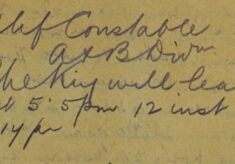 hif Constable
A & B Divn
he King will lea
t 5.5pm 12 inst